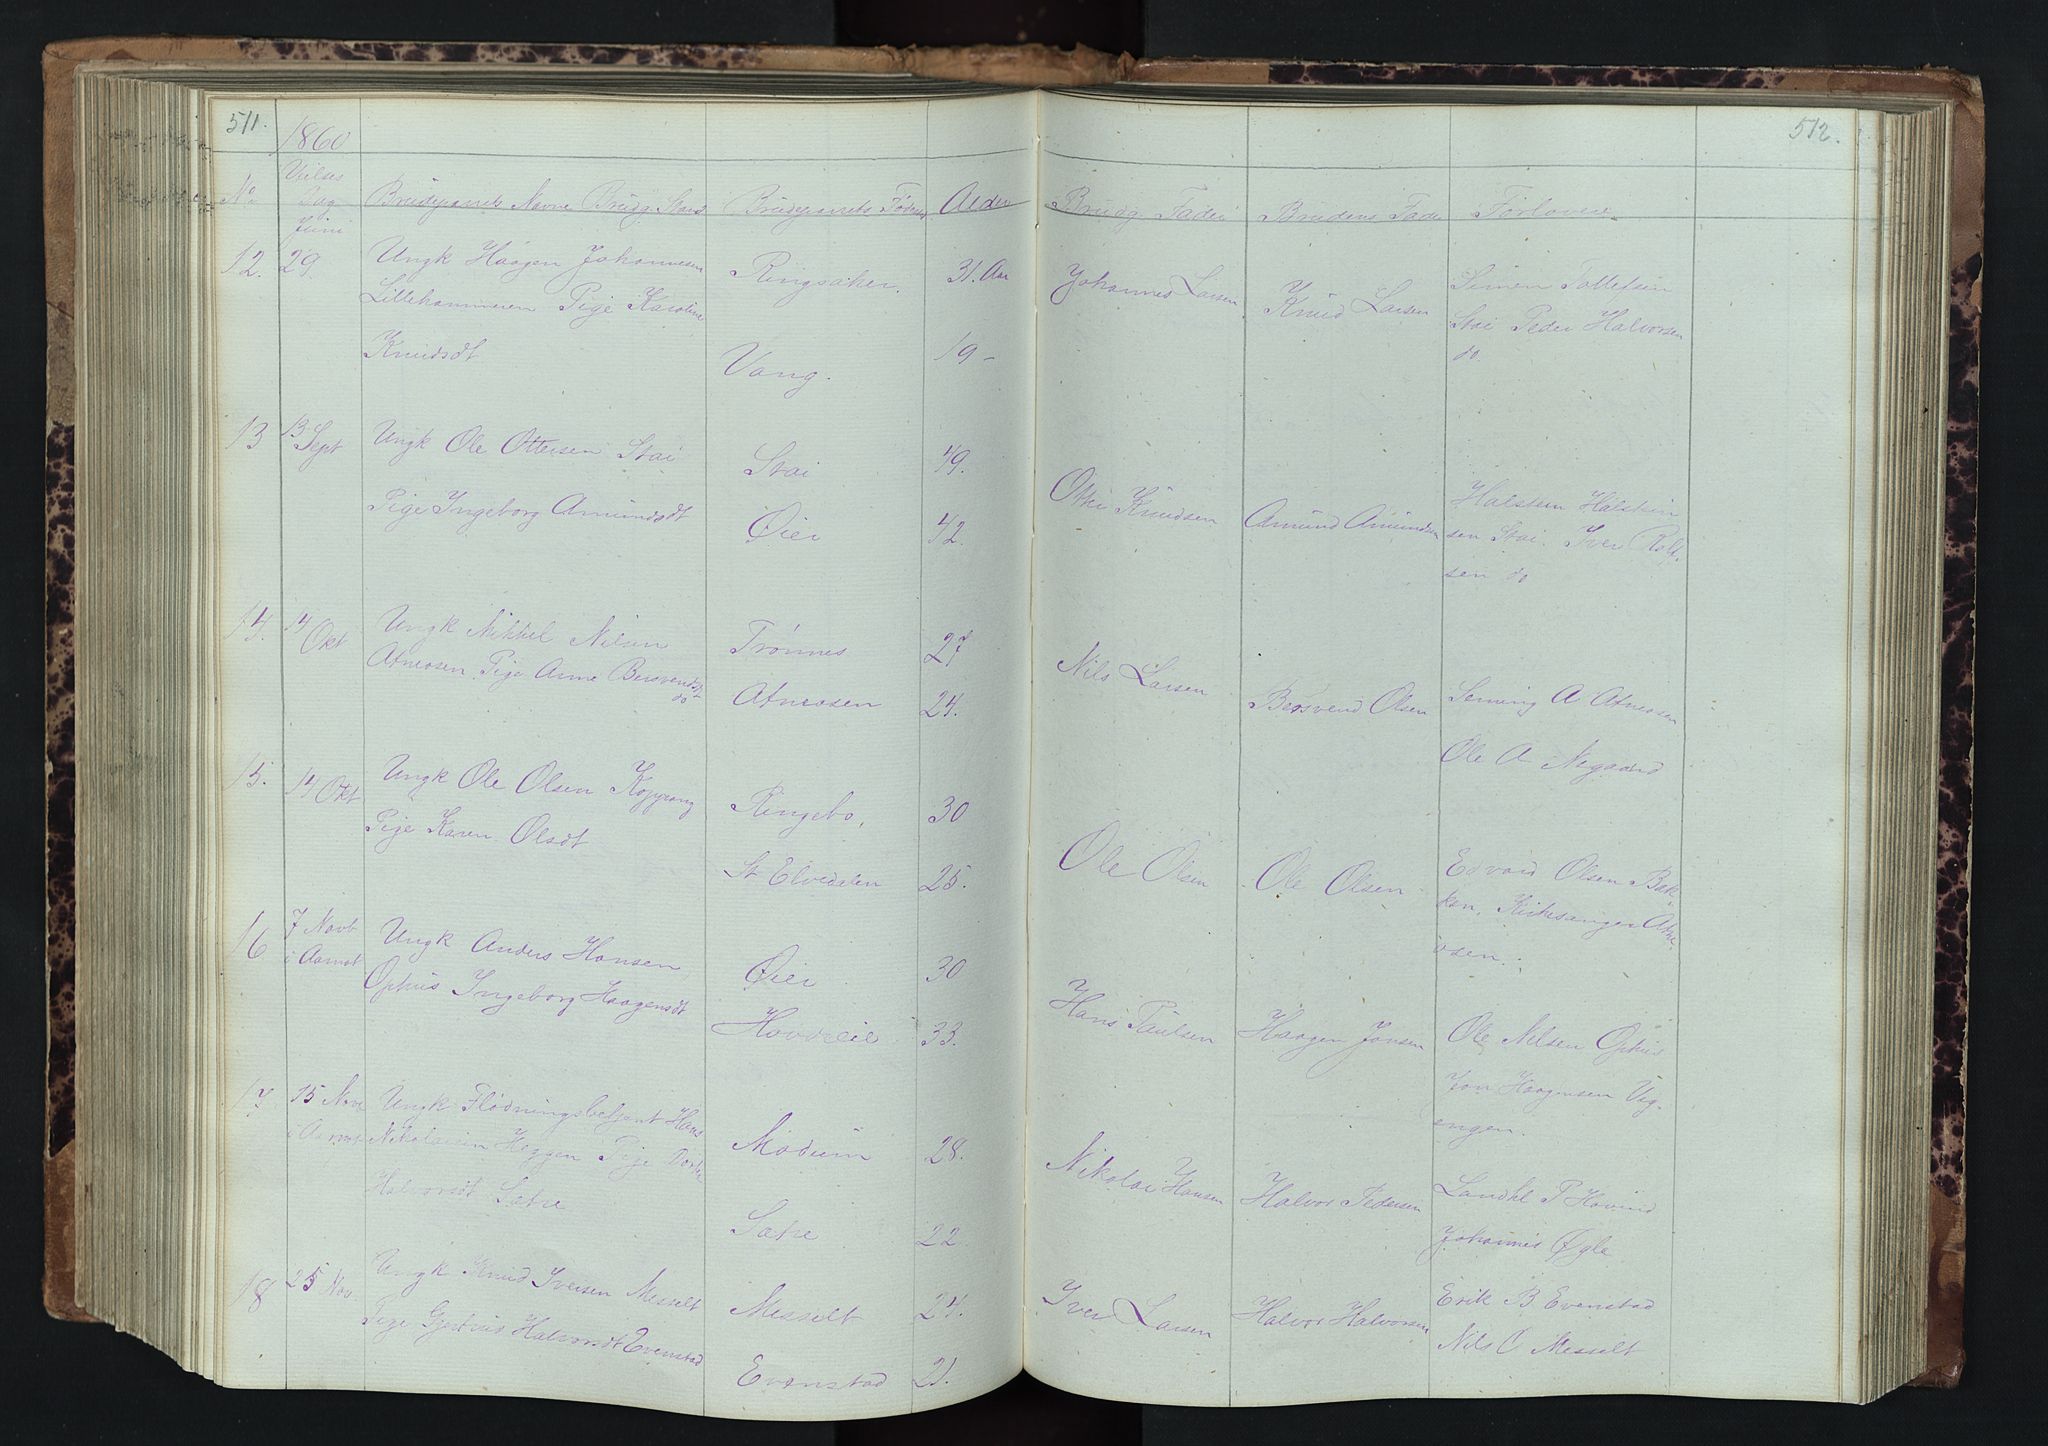 511.
1860
No
Vielses
Dag
Juni
Brudeparrets Navne Brudg. Stand
Brudeparrets Fødest
Alder
12.
29.
Ungk Haagen Johannesen
Lillehammeren Pige Karoline
Knudsdt
Ringsaker.
31. Aar
Vang.
19 -
13
13 Sept
Ungk Ole Ottersen Stai
Pige Ingeborg Amundsdt
Stai
49.
Øier
42.
14.
14 Okt
Ungk Mikkel Nilsen
Atneosen Pige Anne Bersvendsdt
do
Trønnes
27
Atneosen
24.
15.
14 Okt
Ungk Ole Olsen Koppang
Pige Karen Olsdt
Ringebo,
30
St Elvedalen
25.
16
7 Novb
i Aamot
Ungk Anders Hansen
Ophus Ingeborg Haagensdt
Øier
30
33.
17
15 Nov
i Aamot
Ungk Flødningsbetjent Hans
Nikolaisen Heggen Pige
Halvorsdt Sætre
Modum
28.
Sætre
22
18
25 Nov.
Ungk Knud Iversen Messelt
Pige Gjertrus Halvorsdt Evenstad
Messelt
24.
Evenstad
21.
512.
Brudg. Fader
Brudens Fade
Forlovere
Johannes Larsen
Knud Larsen
Simen Tollefsen
Stai Peder Halvorsen
do
Otter Knudsen
Amund Amundsen
Halsten Halstein
sen Stai. Iver Rolf
sen do
Nils Larsen
Bersvend Olsen
Seming A Atneosen
Ole A Negaard
Ole Olsen
Ole Olsen
Edvard Olsen Bak
ken, Kirkesanger Atne
osen.
Hans Paulsen
Haagen Jonsen
Ole Nilsen Ophus
Jon Haagensen Vig
engen.
Nikolai Hansen
Halvor Pedersen
P Hovind
Johannes Øgle
Iver Larsen
Halvor Halvorsen
Erik B Evenstad
Nils O Messelt